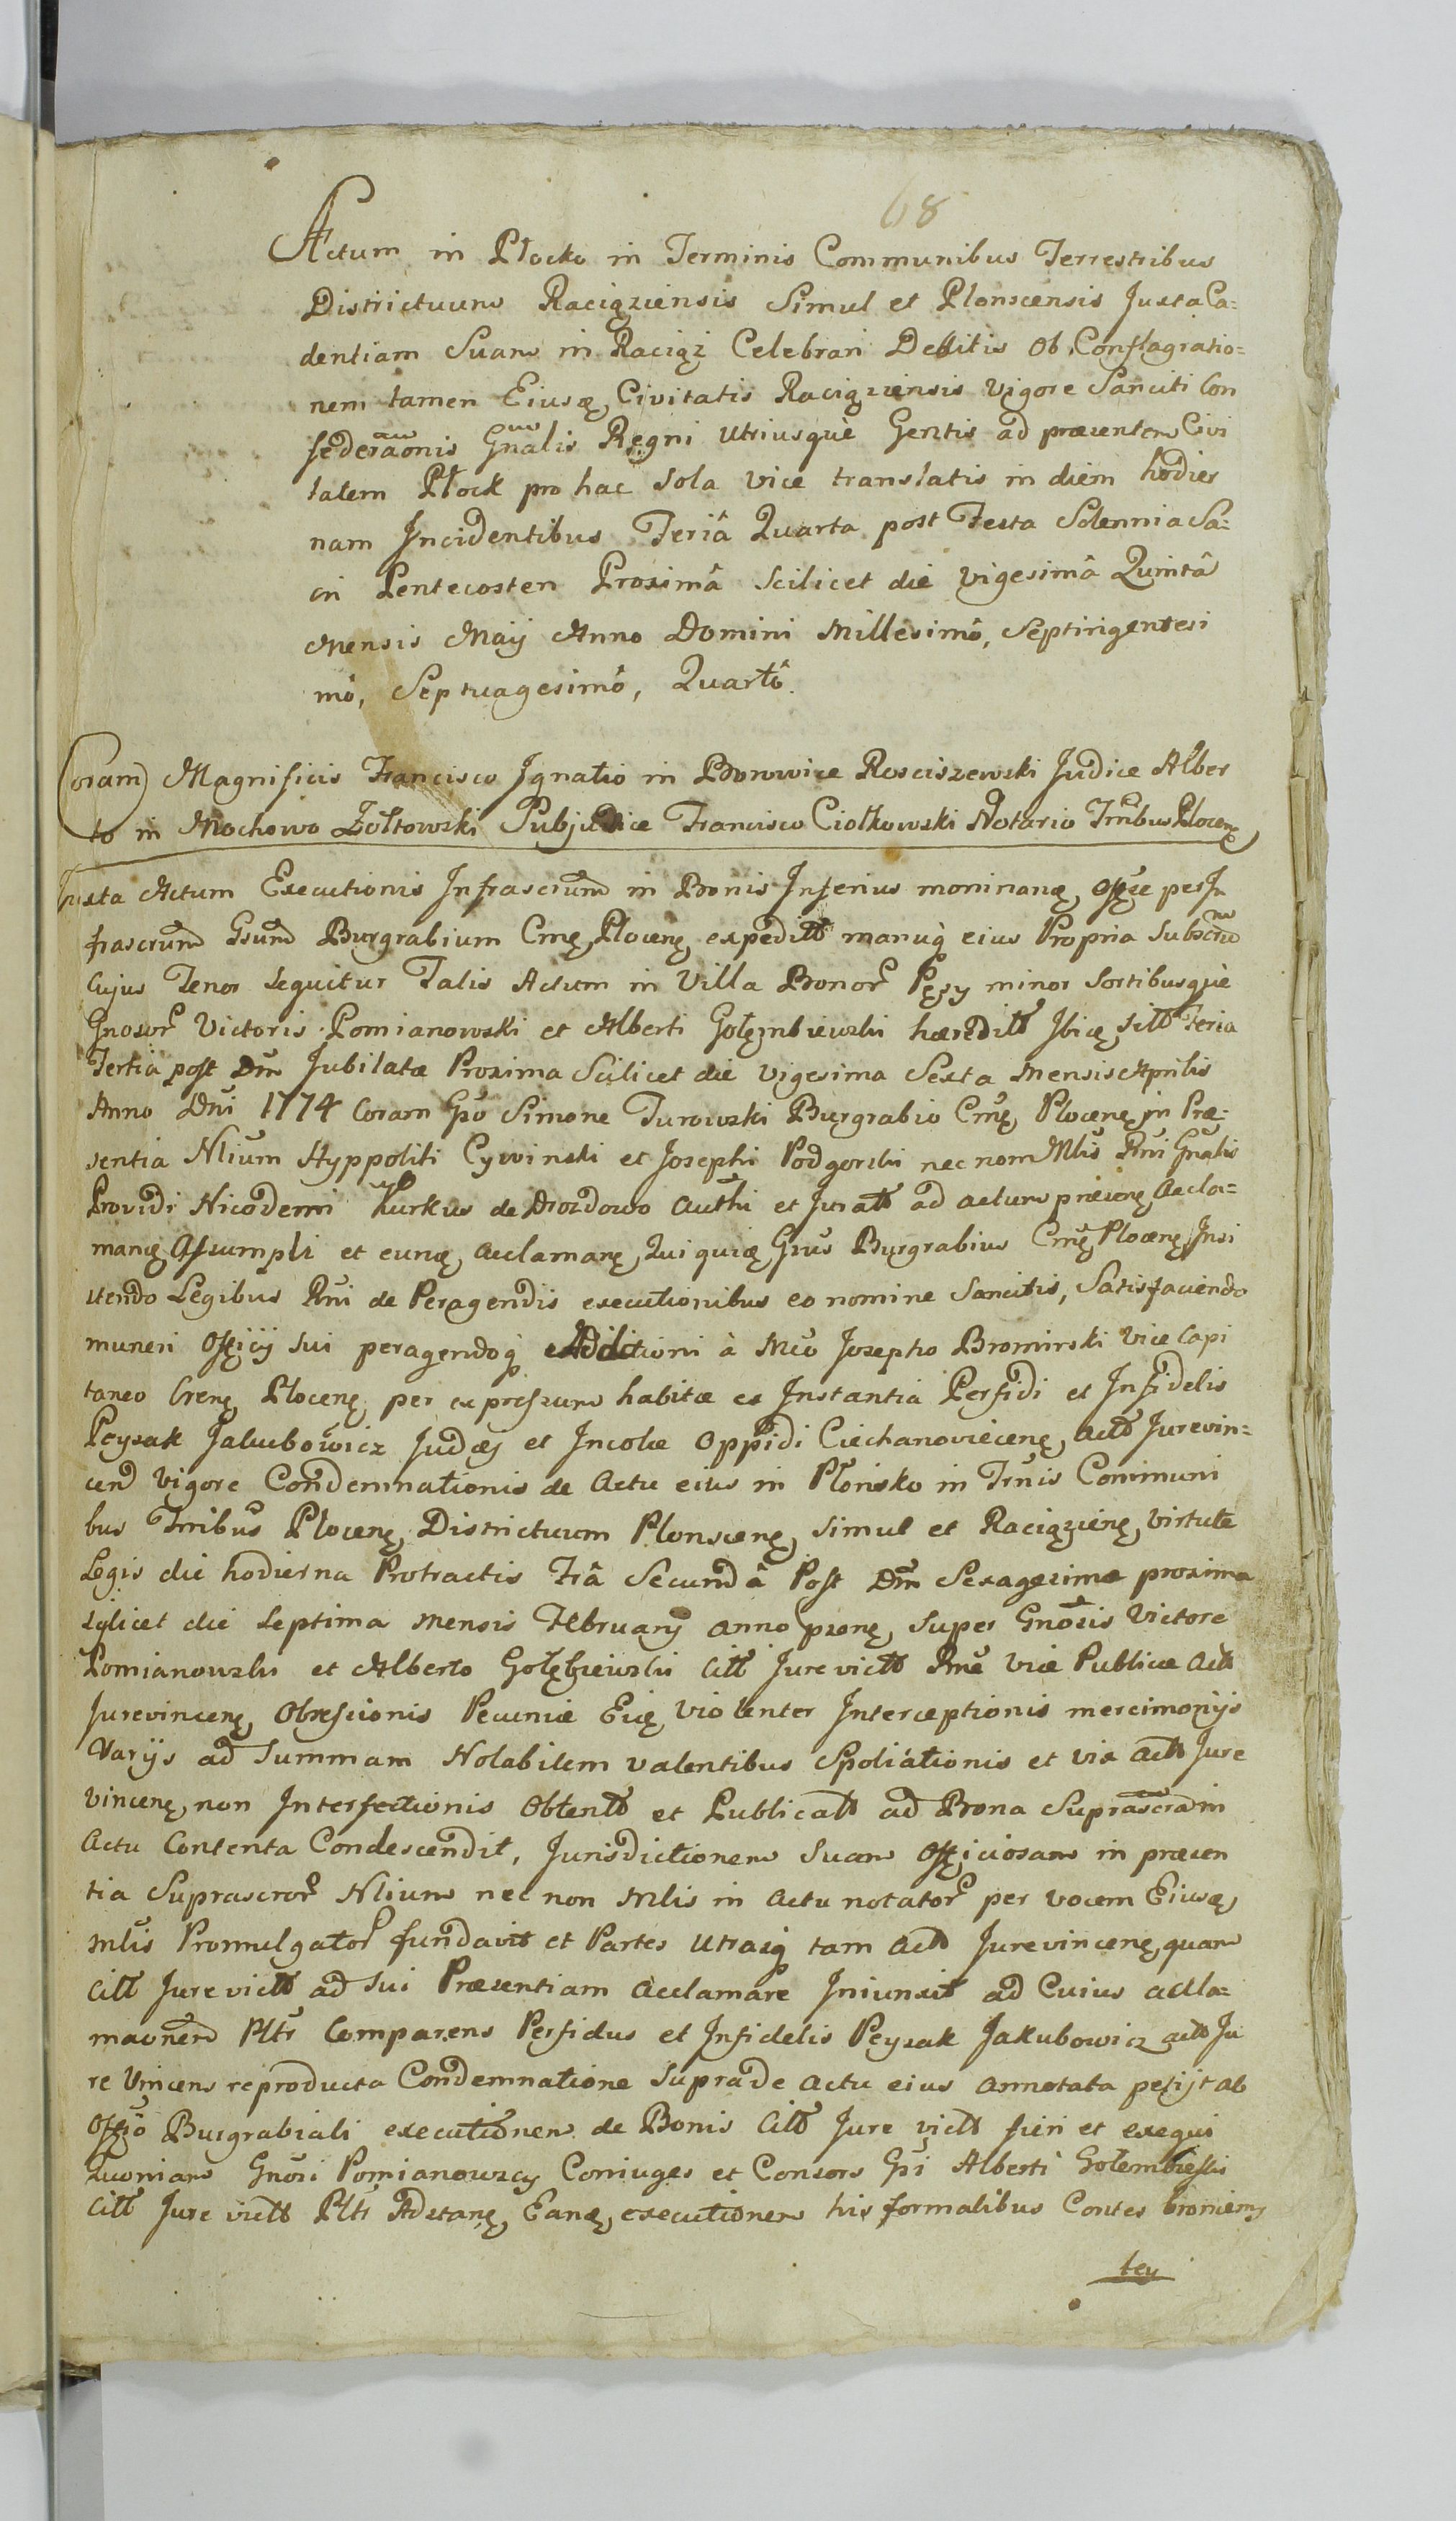 68
Actum in Płocko in Terminis Communibus Terrestribus
Districtuum Raciąziensis Simul et Plonscensis Juxta Ca=
dentiam Suam in Raciąz Celebrari Debitis Ob Conflagratio=
nem tamen Eiusę Civitatis Raciąziensis Vigore Sanciti Con
federaonis Gnalis Regni Utriusquè Gentis ad præsentem Civi
tatem Płock pro hac sola vice translatis in diem hodier
nam Incidentibus Feriâ Quarta post Festa Solennia Sa=
cri Pentecosten Proximâ Scilicet die vigesimâ Quintâ
Mensis Maij Anno Domini Millesimô, Septingentesi
mô, Septuagesimô, Quartô.
Coram Magnificis Francisco Ignatio in Borowice Rosciszewski Judice Alber
to in Mochowo Zołtowski Subjudice Francisco Ciołkowski Notario Trribus Plocenę
Juxta Actum Executionis Infrascrium in Bonis Inferius moninanę, Offęe per In
frascrum Gsum Burgrabium Cmę Plocenę expeditt manuq eius Propria Subscrm
Cujus Tenor Sequitur Talis Actum in Villa Bonor Pęsy minor Sortibusquè
Gnosor Victoris Pomianowski et Alberti Gołęmbiewski hæreditt Ibię, sitt Feria
Tertia post Dm Jubilatæ Proxima Scilicet die vigesima Sexta Mensis Aprilis
Anno Dni 1774 Coram Gso Simone Turowski Burgrabio Cmę Plocenę in Præ=
sentia Nlium Hyppoliti Cywinski et Josephi Podgorski nec nom Mlis Rni Gnalis
Providi Nicodemi Kurkus de Drozdowo Authi et Juratt ad actum præsenę Accla=
manę Assumpti et eunę, acclamanę, Qui quię Gsus Burgrabius Cmę Plocenę Insi
stendo Legibus Rni de Peragendis executionibus eo nomine Sancitis, Satisfaciendo
muneri Officij sui peragendoq Additioni à Mco Josepho Bromirski Vice Capi
taneo Crenę Plocenę per expressum habitæ ex Instantia Perfidi et Infidelis
Peysak Jakubowicz Judæj et Incolæ Oppidi Ciechanoviecenę, actt Jurevin=
cend Vigore Condemnationis de Actu eius in Płońsko in Trnis Communi
bus Trribus Plocenę Districtuum Plonscenę, Simul et Raciązienę, virtute
Legis die hodierna Protractis Friâ Secundâ Post Dm Sexagesimæ proxima
scilicet die Septima mensis Februarij anno præsenę, super Gnosis Victore
Pomianowski et Alberto Gołębiewski Citt Jurevictt Rnè viæ Publicæ Actt
Jurevincenę, Obsessionis Pecuniæ Eię violenter Interceptionis mercimonijs
Varijs ad Summam Notabilem valentibus Spoliationis et vix actt Jure
vincenę, non Interfectionis Obtentt et Publicatt ad Bona Suprascra in
Actu Contenta Condescendit, Jurisdictionem Suam Officiosam in præsen
tia Suprascror Nlium nec non Mlis in Actu notator per vocem Eiusę
Mlis Promulgator fundavit et Partes Utrasq tam actt Jurevincenę, quam
Citt Jure victt ad sui Præsentiam Acclamare Iniunxit ad Cuius accla=
maonem Pltr Comparens Perfidus et Infidelis Peysak Jakubowicz actt Ju
re Vincens reproducta Condemnatione supra de actu eius annotata petijt ab
Offo Burgrabiali executionem de Bonis Citt Jure victt fieri et exequi
Quoniam Gnosi Pomianowscy Coniuges et Consors Gsi Alberti Gołembieski
Citt Jure victt Pltr Adstanę, Eanę, executionem his formalibus Contes bronien
tey